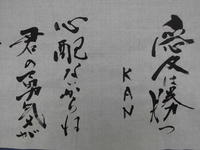 愛は勝つ
KAN
心配ないからね
君の勇気が